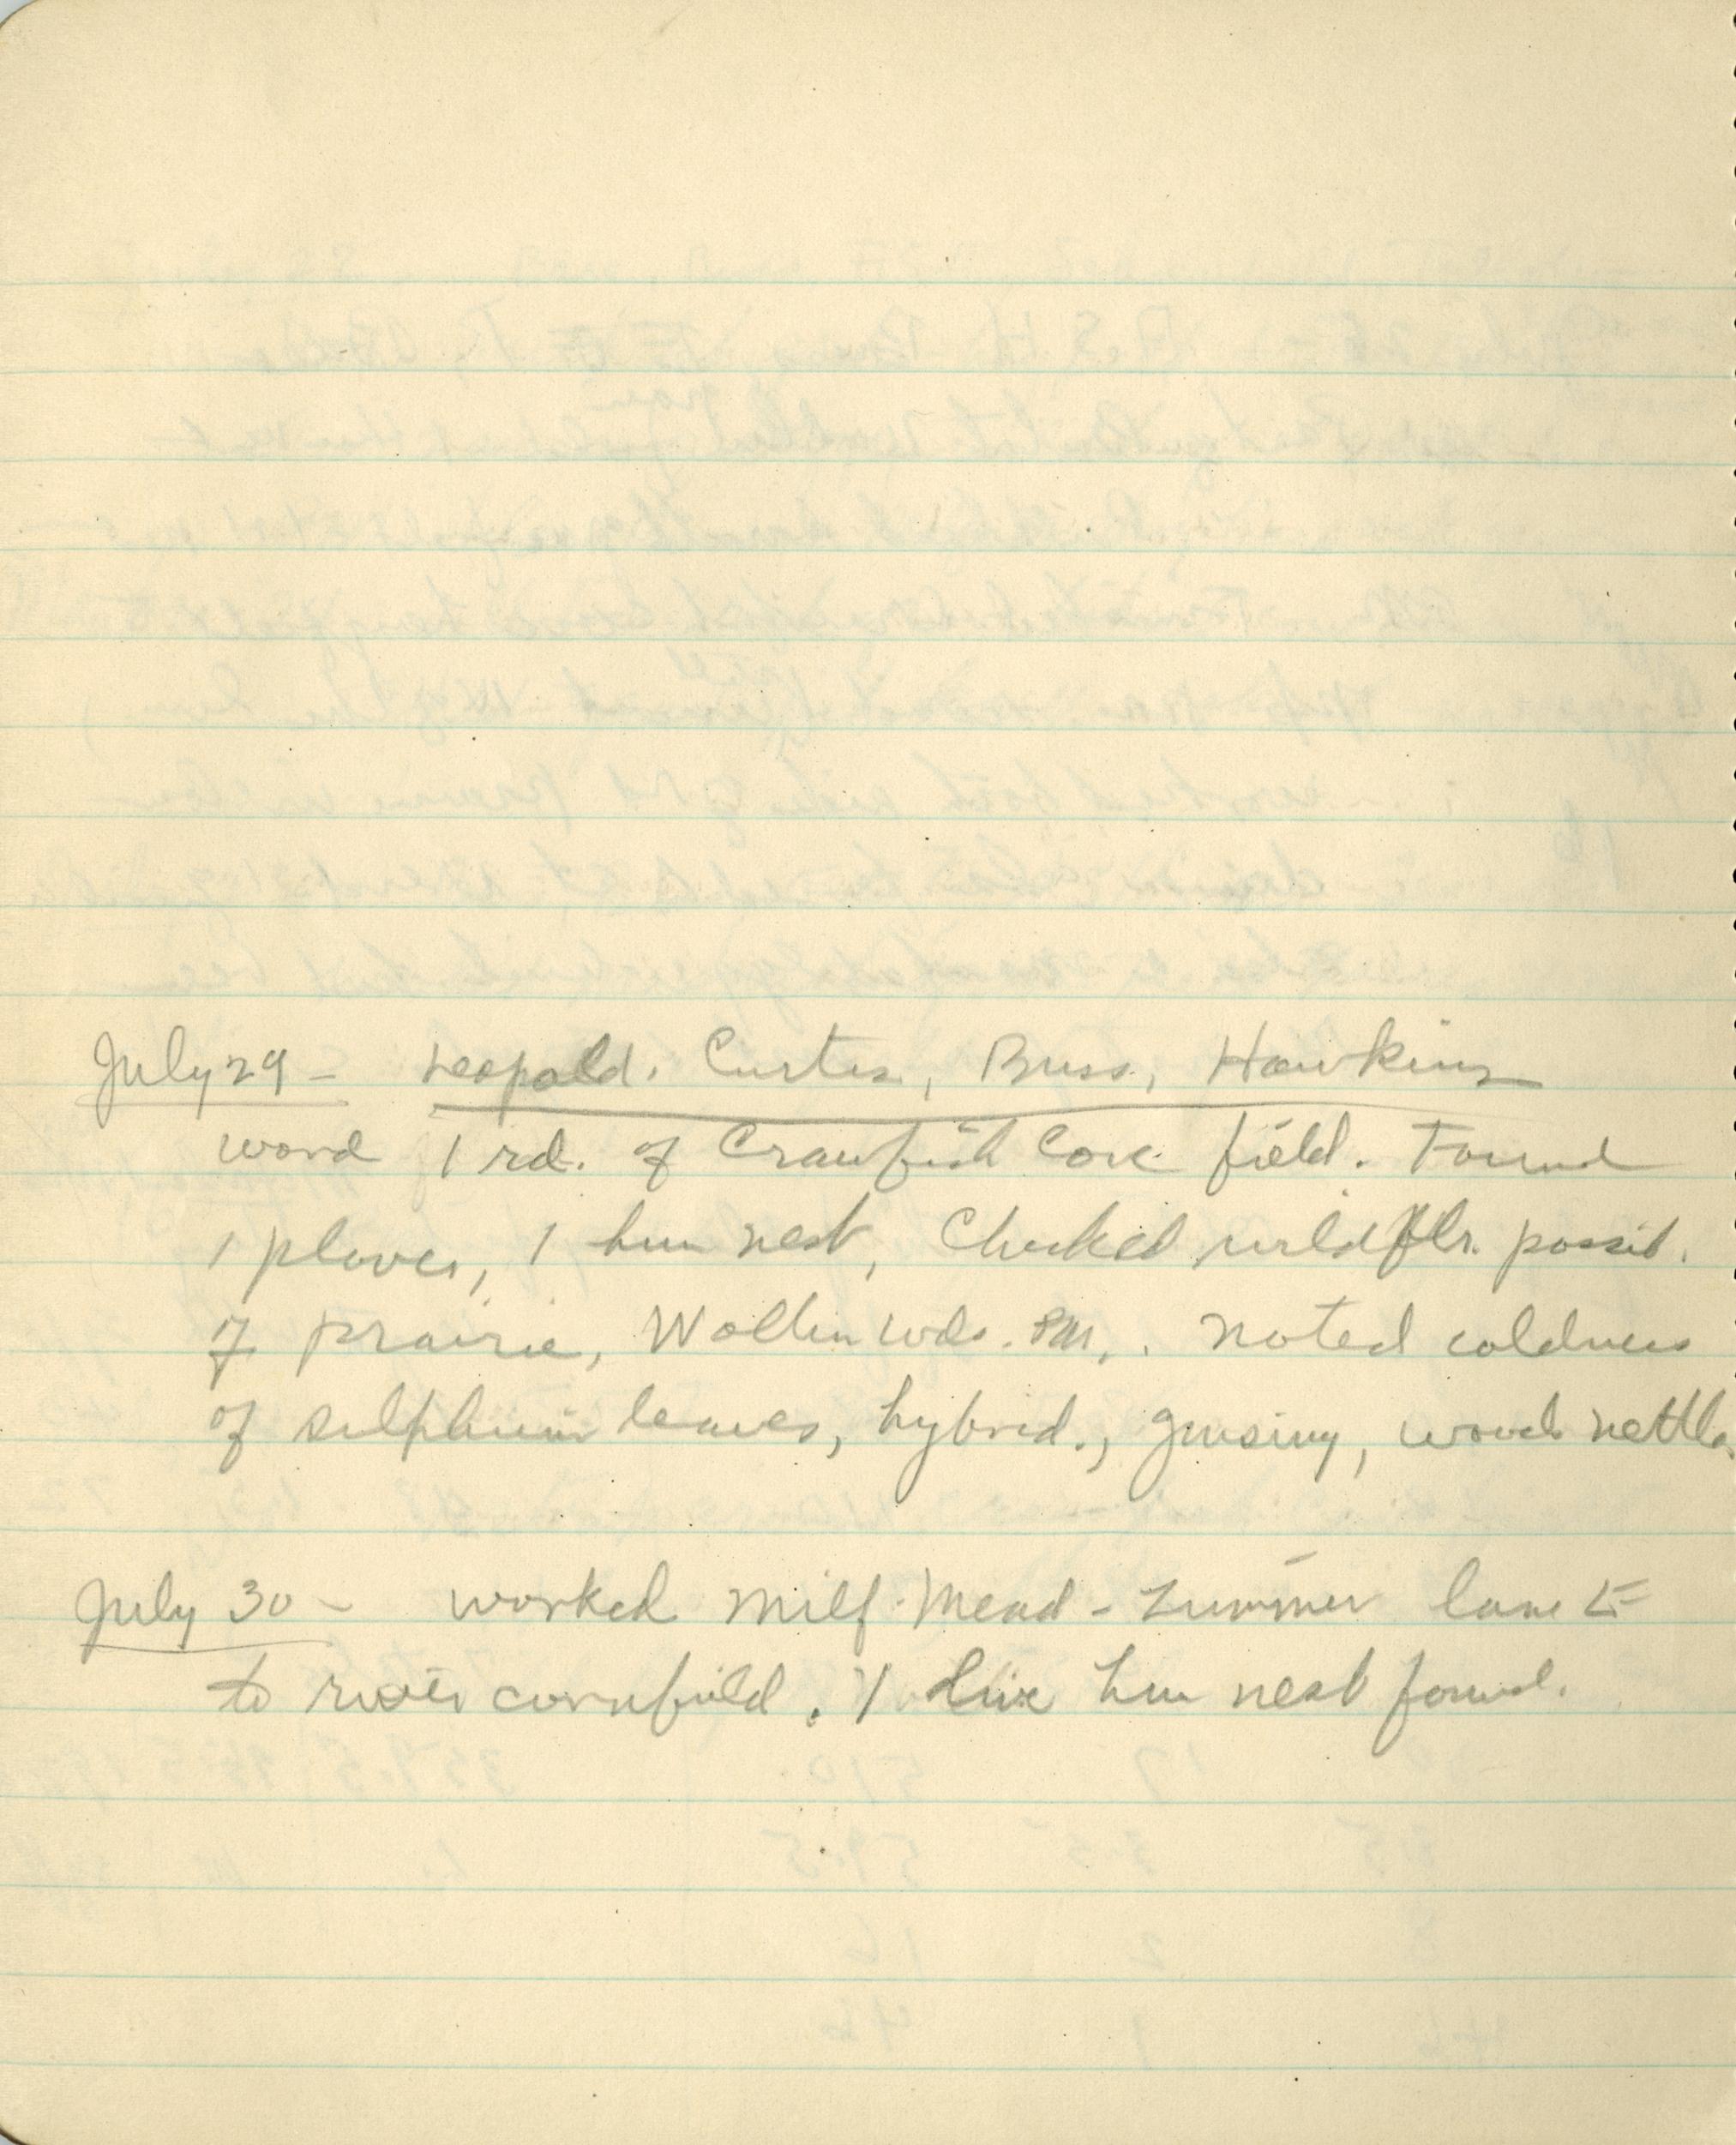 July 29 - Leopold, Curtis, Buss, Hawkins
1 rd. of Crawfish Cove field. Found
1 plover, 1 hun nest, Checked wildflr. possib.
of prairie, Wollin wds. PM. Noted coldness
of silphium leaves, hybrid., ginsing, wood nettle.
July 30 - worked Milf. Mead - Zummer lane
to river cornfield. 1 live hun nest found.